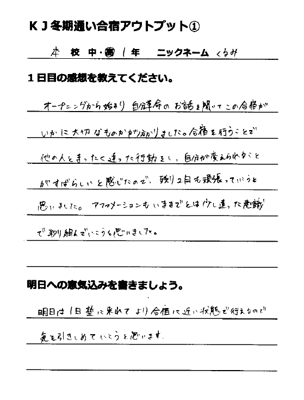 KJ冬期通い合宿アウトプット①
本 校 中・高 1 年 ニックネーム くるみ
1日目の感想を教えてください。
オープニングから始まり 自分革命のお話を聞いてこの合宿が
いかに大切なものかが分かりました。合宿を行うことで
他の人とまったく違った行動をし、自分が変えられること
がすばらしいと感じたので、残り2日も頑張っていこうと
思いました。アファメーションもいままでとは少し違った意識
で取り組んでいこうと思いました。
明日への意気込みを書きましょう。
明日は1日塾に来れてより合宿に近い状態で行えるので
気を引きしめていこうと思います。